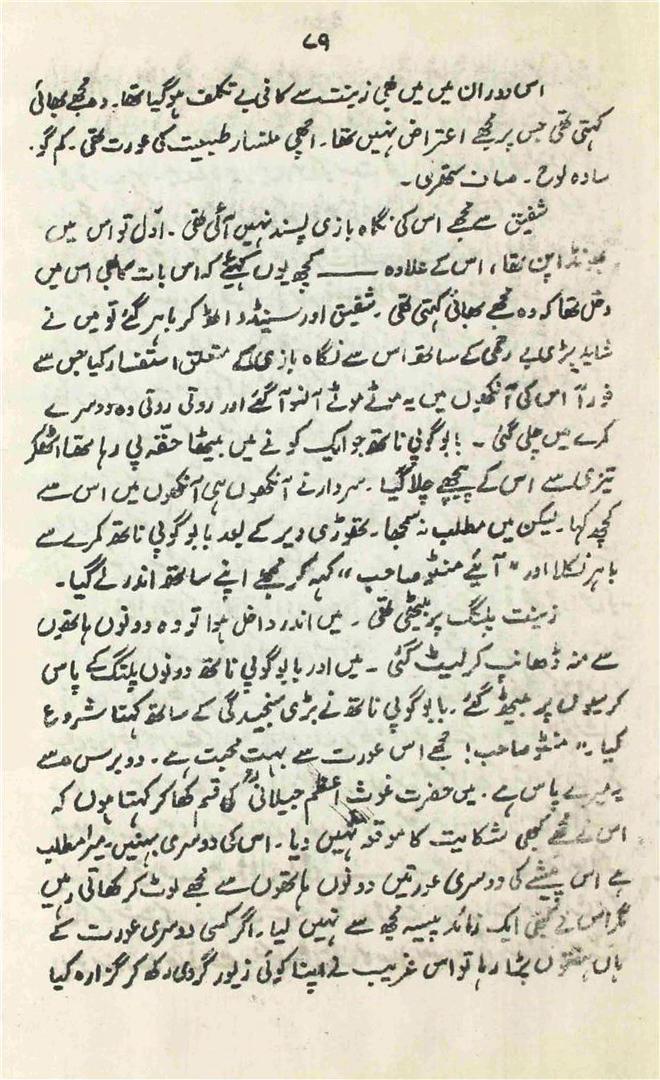 ۸۹
اس دوران میں میں بھی زینت سے کافی بے تکلف ہوگیا تھا۔ وہ مجھے بھائی
کہتی تھی جس پر مجھے اعتراض نہیں تھا۔ اچھی ملنسار طبیعت کی عورت تھی۔ کم گو۔
سادہ لوح۔ صاف ستھری۔
شفیق سے مجھے اس کی نگاہ بازی پسند نہیں آئی تھی۔ اوّل تو اس میں
بھونڈاپن تھا، اس کے علاوہ ــــــ کچھ یوں کہیئے کہ اس بات کا بھی اس میں
دخل تھا کہ وہ مجھے بھائی کہتی تھی۔ شفیق اور سینڈو اٹھ کر باہر گئے تو میں نے
شاید بڑی بے رحمی کے ساتھ اس سے نگاہ بازی کے متعلق استفسار کیا جس سے
فوراً اس کی آنکھوں میں یہ موٹے موٹے آنسو آگئے اور روتی روتی وہ دوسرے
کمرے میں چلی گئی۔ بابو گوپی ناتھ جو ایک کونے میں بیٹھا حقّہ پی رہا تھا اٹھکر
تیزی سے اس کے پیچھے چلا گیا۔ سردار نے آنکھوں ہی آنکھوں میں اس سے
کچھ کہا۔ لیکن میں مطلب نہ سمجھا۔ تھوڑی دیر کے بعد بابو گوپی ناتھ کمرے سے
باہر نکلا اور "آیئے منٹو صاحب" کہہ کر مجھے اپنے ساتھ اندر لے گیا۔
زینت پلنگ پر بیٹھی تھی۔ میں اندر داخل ہوا تو وہ دونوں ہاتھوں
سے منہ ڈھانپ کر لیٹ گئی۔ میں اور بابو گوپی ناتھ دونوں پلنگ کے پاس
کرسیوں پر بیٹھ گئے۔ بابو گوپی ناتھ نے بڑی سنجیدگی کے ساتھ کہنا شروع
کیا۔ "منٹو صاحب! مجھے اس عورت سے بہت محبت ہے۔ دو برس سے
یہ میرے پاس ہے۔ میں حضرت غوث اعظم جیلانیؒ کی قسم کھا کر کہتا ہوں کہ
اس نے مجھے کبھی شکایت کا موقعہ نہیں دیا۔ اس کی دوسری بہنیں۔ میرا مطلب
ہے اس پیشے کی دوسری عورتیں دونوں ہاتھوں سے مجھے لوٹ کر کھاتی رہیں
مگر اس نے کبھی ایک زائد پیسہ مجھ سے نہیں لیا۔ اگر کسی دوسری عورت کے
ہاں ہفتوں پڑا رہا تو اس غریب نے اپنا کوئی زیور گروی رکھ کر گزارہ کیا